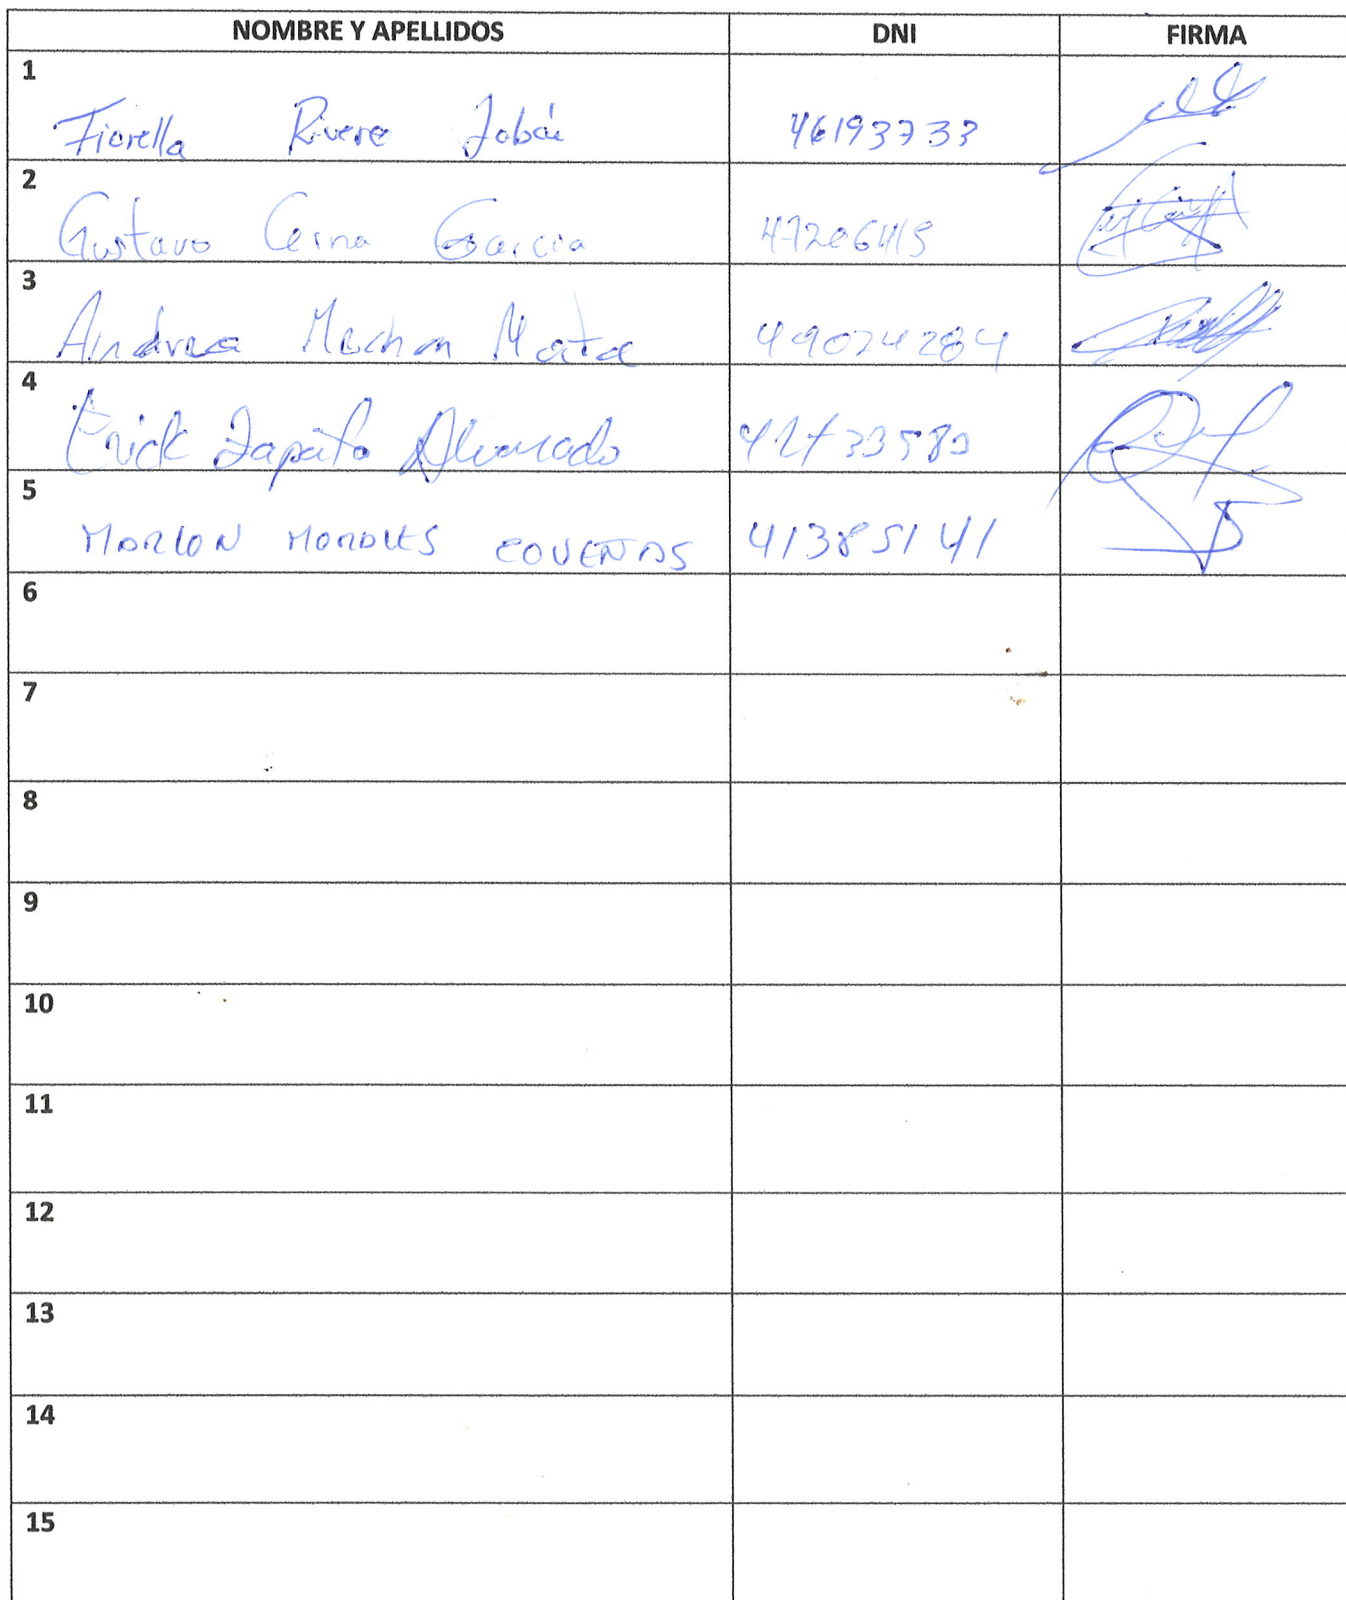 NOMBRE Y APELLIDOS DNI FIRMA
1
Fiorella Rivera 46193733
2
Gustavo Cerna Garcia 47206415
3
Andrea Mata 49074284
4
Erick Zapata Alvarado
5
MARLON MORALES COVEÑAS 41385141
6
7
8
9
10
11
12
13
14
15